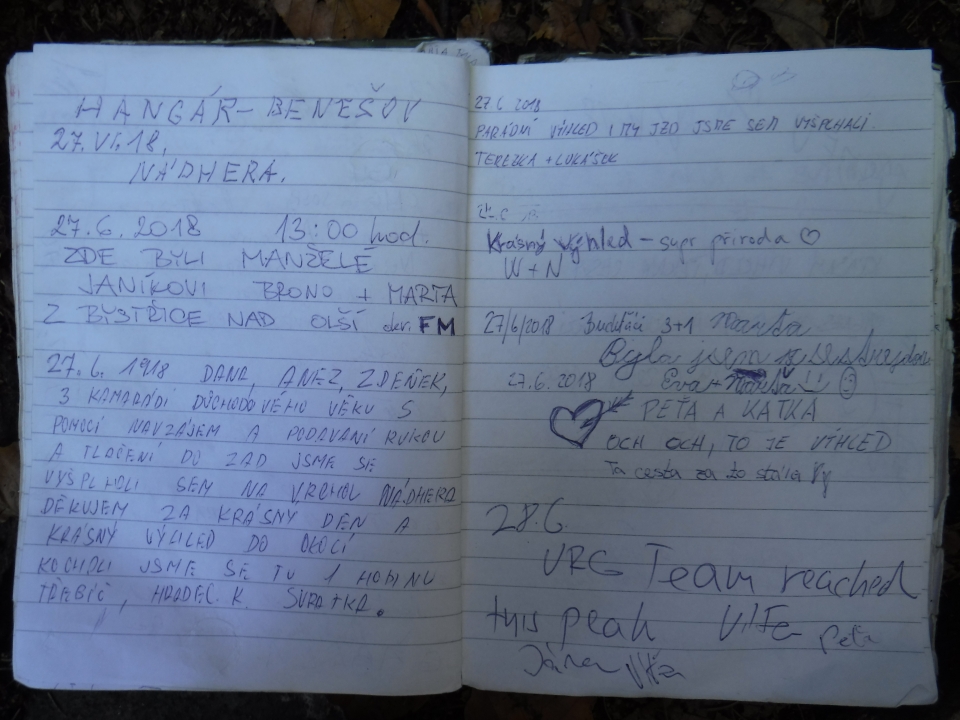 HANGÁR-BENEŠOV
27.VI.18,
NÁDHERA.
27.6.2018 13:00 hod.
ZDE BYLI MANŽELÉ
JANÍKOVI BRONO + MARTA
Z BYSTŘICE NAD OLŠÍ okr. FM
27.6. 1918 DANA, ANEZ, ZDENĚK,
3 KAMARÁDI DŮCHODOVÉHO VĚKU S
POMOCÍ NAVZÁJEM A PODÁVÁNÍ RUKOU
A TLAČENÍ DO ZAD JSME SE
VYŠPLHOLI SEM NA VRCHOL NÁDHERA
DĚKUJEM ZA KRÁSNÝ DEN A
KRÁSNÝ VÝHLED DO OKOLÍ
KOCHOLI JSME SE TU 1 HODINU
TŘEBÍČ, HRADEC. K. SVRATKA.
27 6 2018
PARÁDNÍ VÝHLED I MY JZD JSME SEM VYŠPLHALI.
TEREZKA + LUKÁŠEK
Krásný výhled - supr příroda ♡
W + N
27/6/2018 3+1
Byla jsem
27.6.2018, Eva +
PEŤA A KATKA
OCH OCH, TO JE VÍHLED
Ta cesta za to stála
28.6.
VRG Team reached
this peak Peťa
Jána Víťa